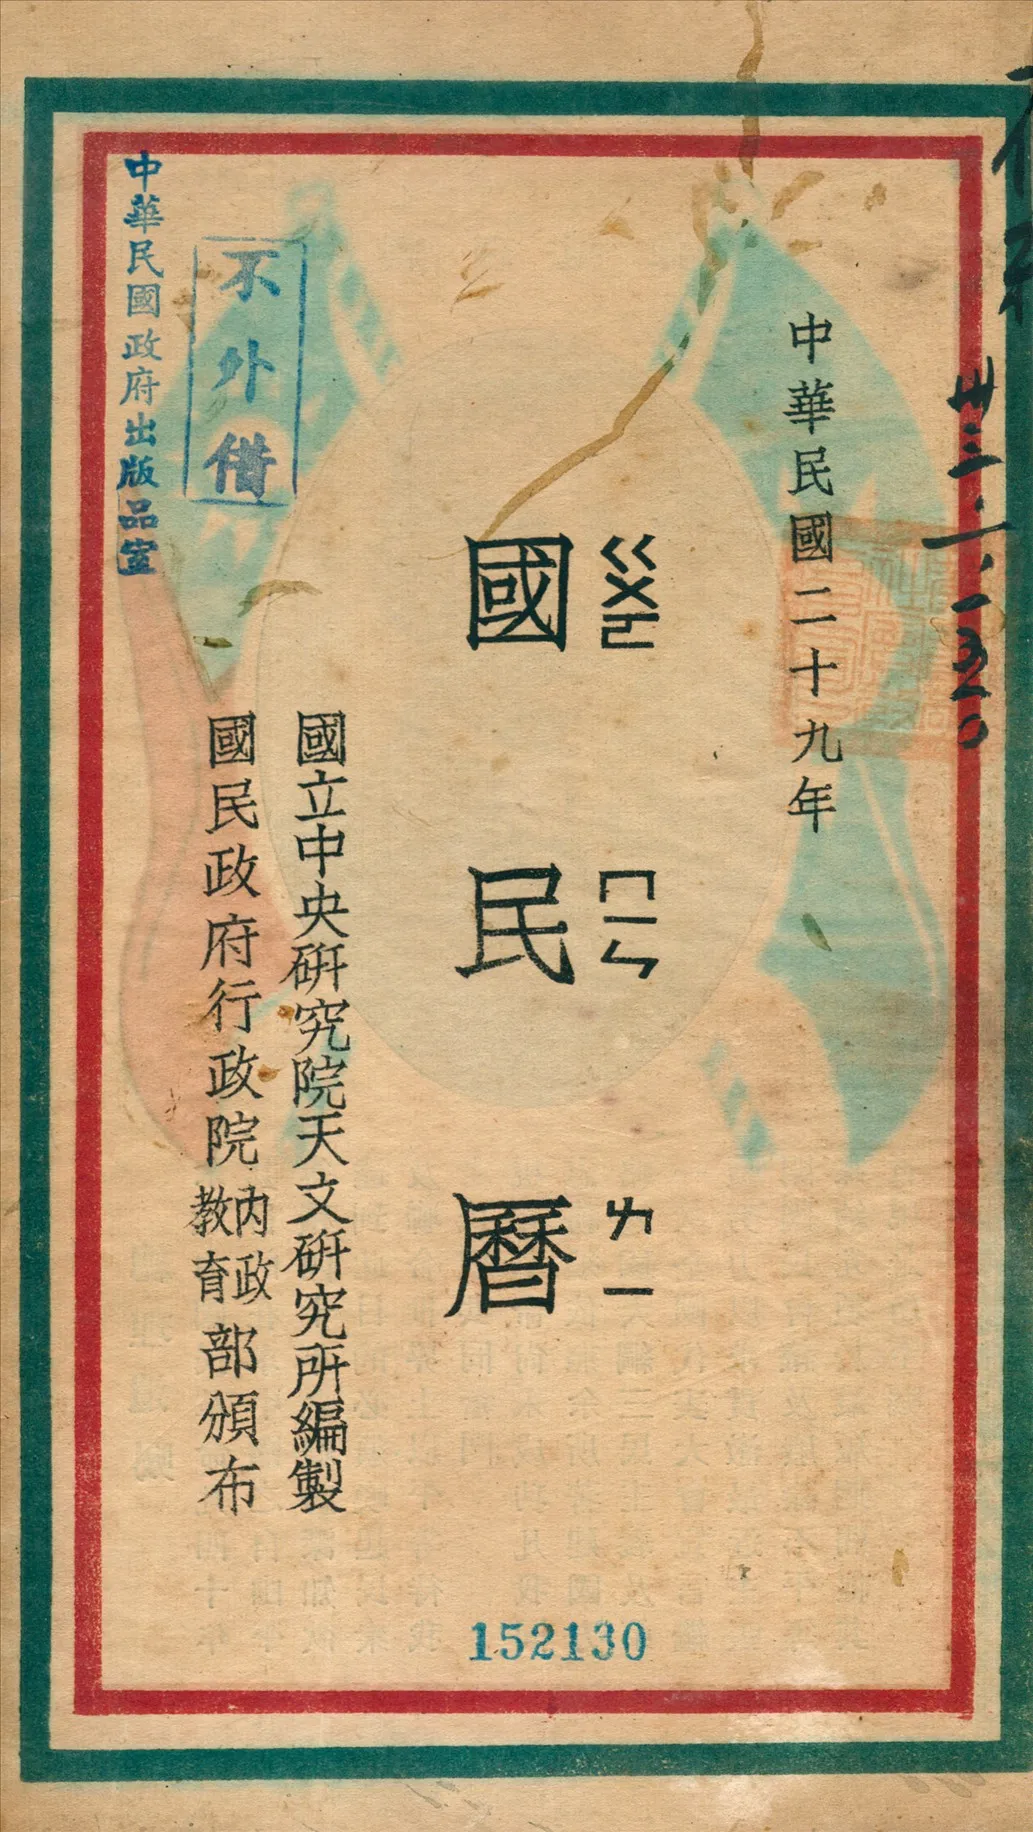 中華民國二十九年
國民曆
ㄍㄨㄛ ㄇㄧㄣ ㄌㄧ
國立中央研究院天文研究所編製
國民政府行政院內政教育部頒布
不外借
中華民國政府出版品室
卅三.二.一五〇
152130